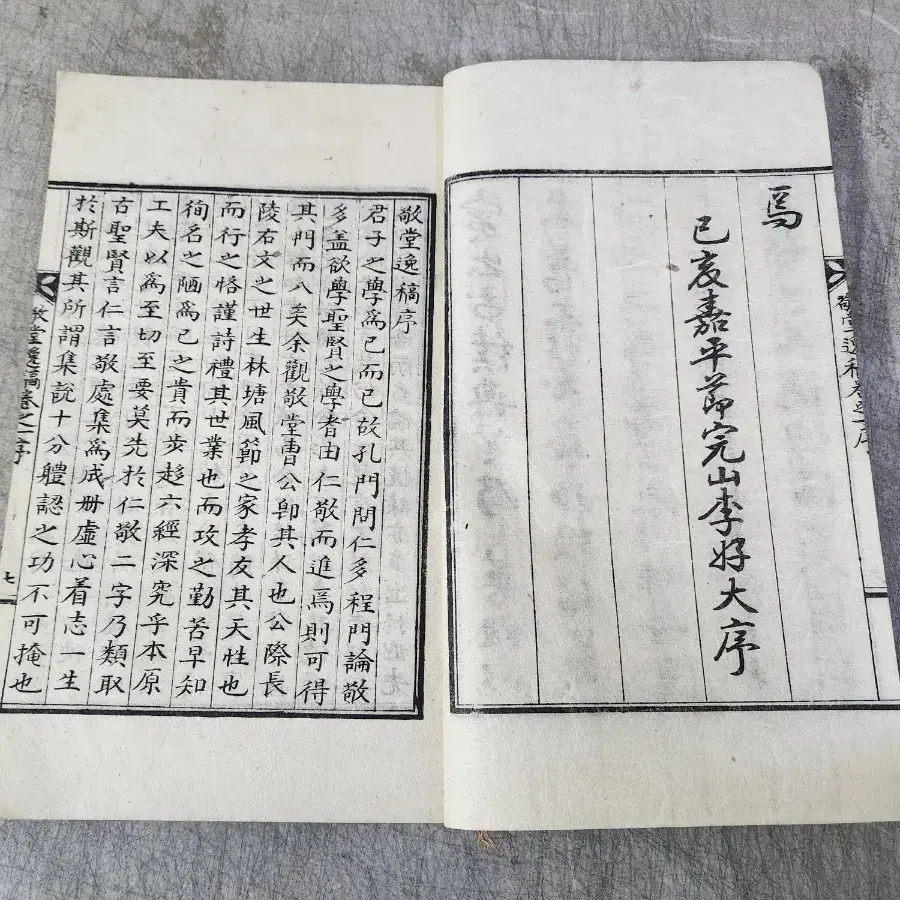 焉
己亥嘉平節完山李好大序
敬堂逸稿序
君子之學爲己而已故孔門問仁多程門論敬
多盖欲學聖賢之學者由仁敬而進焉則可得
其門而入矣余觀敬堂曺公卽其人也公際長
陵右文之世生林塘風節之家孝友其天性也
而行之恪謹詩禮其世業也而攻之勤苦早知
徇名之陋爲己之貴而步趍六經深究乎本原
工夫以爲至切至要莫先於仁敬二字乃類取
古聖賢言仁言敬處集爲成冊虛心着志一生
於斯觀其所謂集說十分體認之功不可掩也
敬堂逸稿卷之一序
七